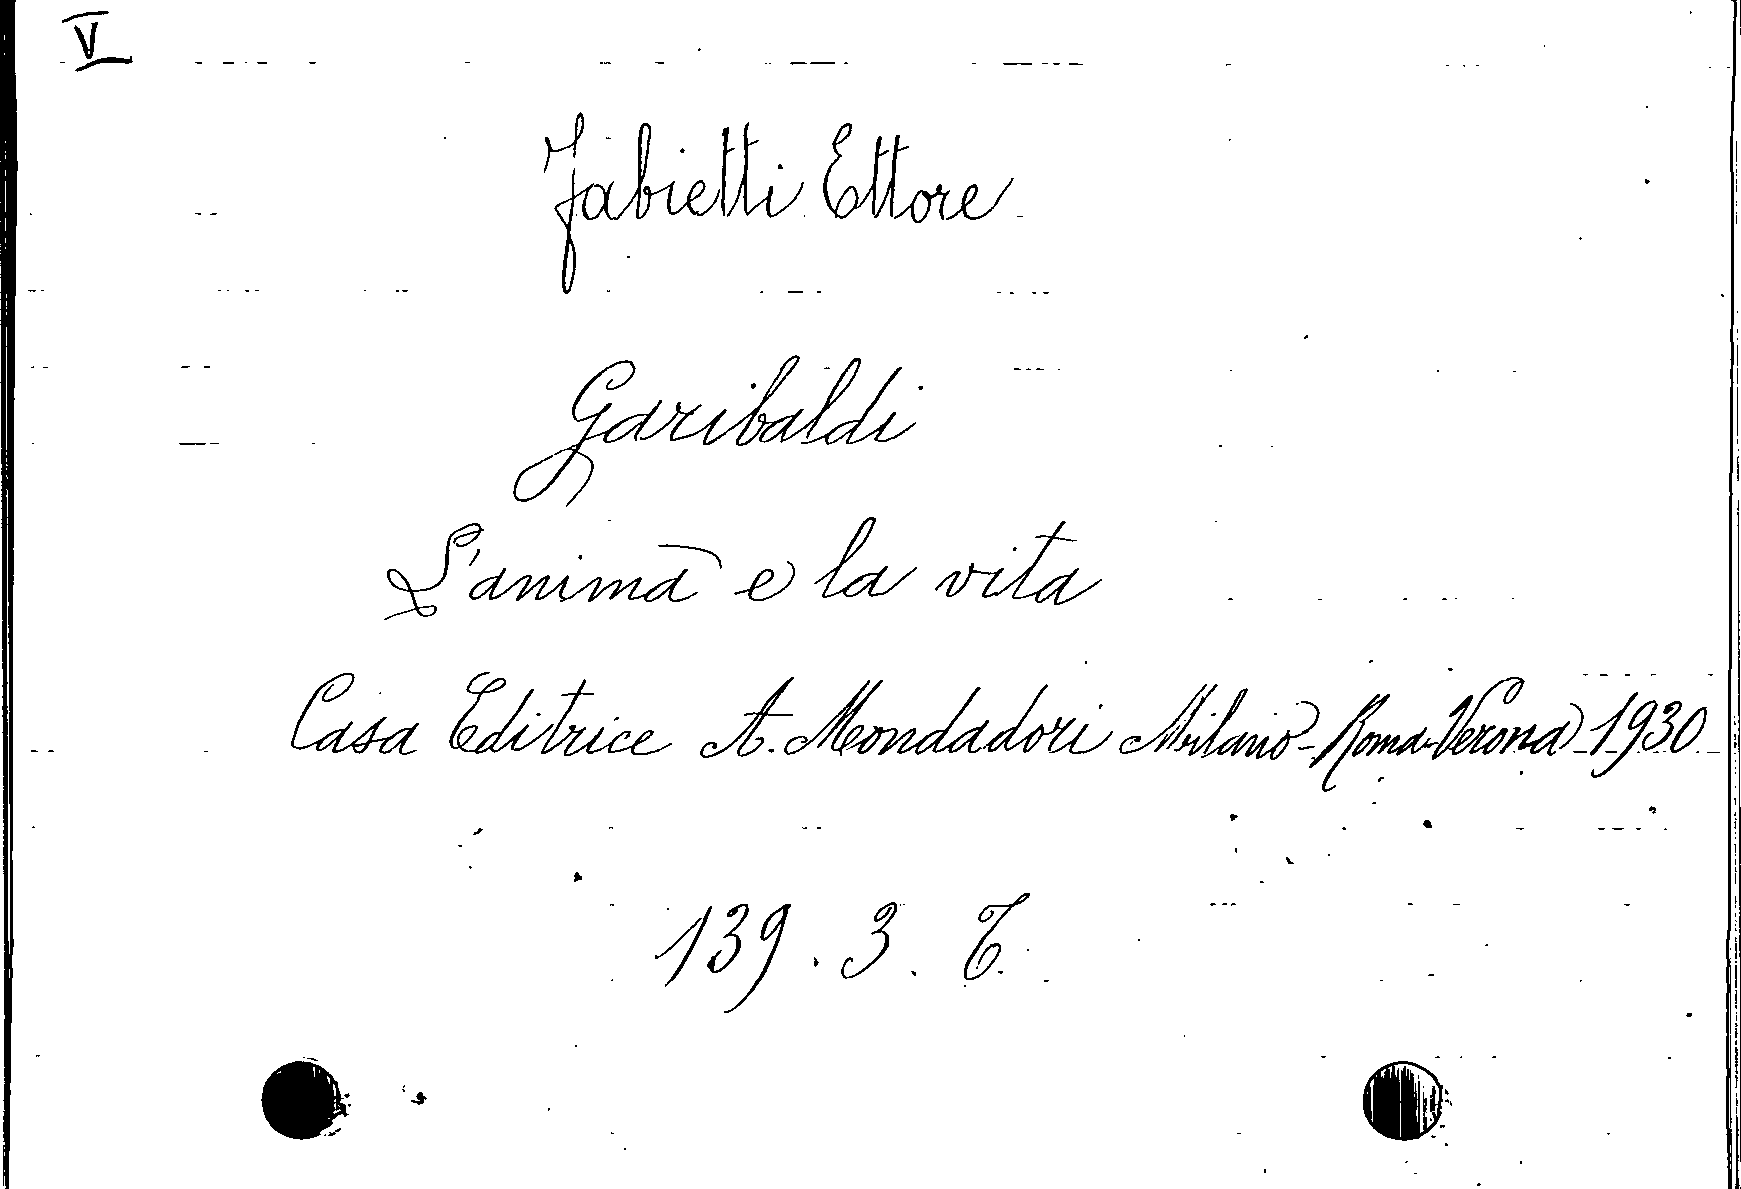 V
Fabietti Ettore
Garibaldi
L'anima e la vita
Casa Editrice A. Mondadori Milano-Roma-Verona 1930
139. 3. T.